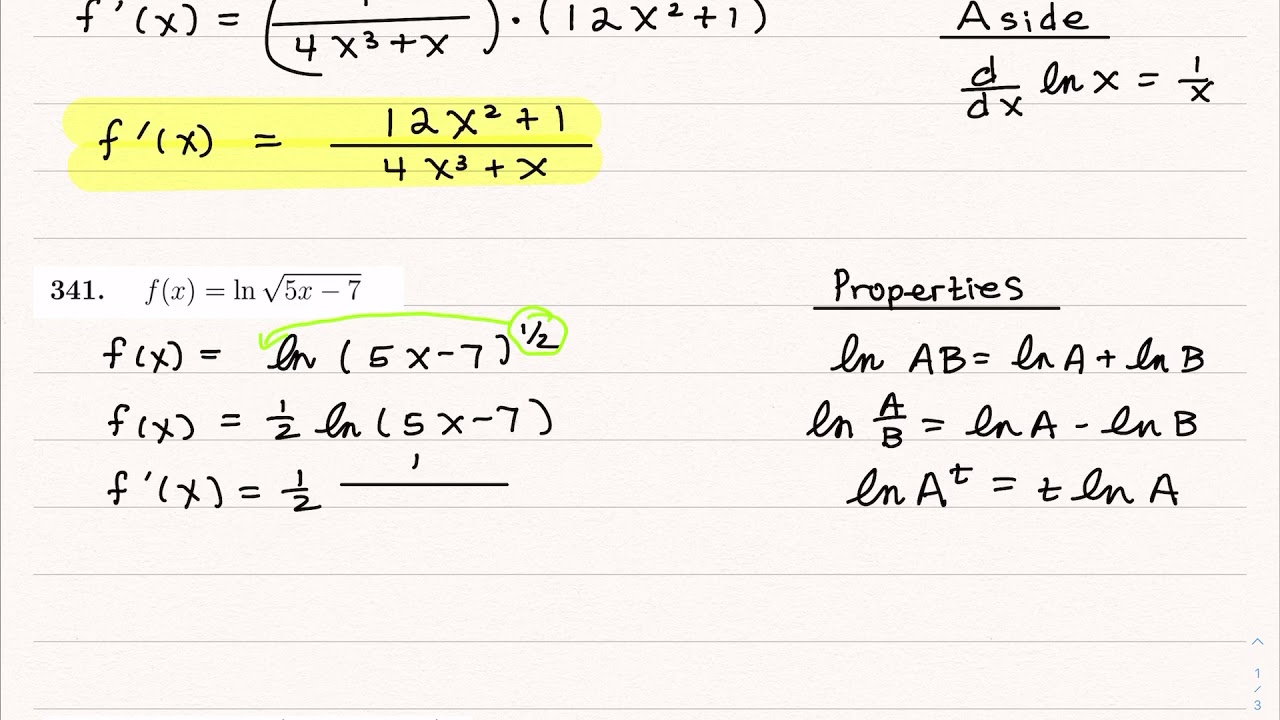 f'(x) = (1/(4x³+x)) · (12x²+1)
Aside
d/dx ln x = 1/x
f'(x) = (12x²+1)/(4x³+x)
341. f(x) = ln √(5x − 7)
f(x) = ln (5x-7)^(1/2)
f(x) = 1/2 ln(5x-7)
f'(x) = 1/2 1/
Properties
ln AB = ln A + ln B
ln A/B = ln A - ln B
ln A^t = t ln A
1/3